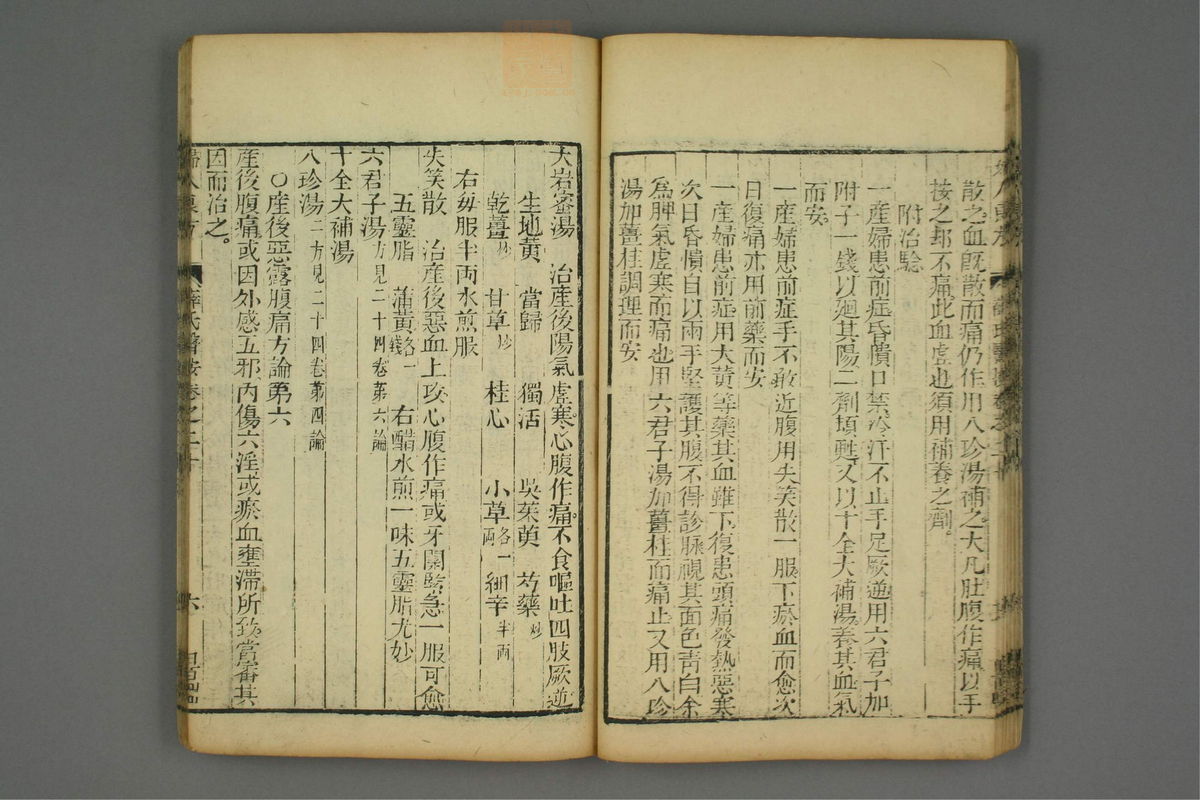 散之血既散而痛仍作用八珍湯補之大凡肚腹作痛以手
按之却不痛此血虛也須用補養之劑。
附治驗
一產婦患前症昏憒口禁冷汗不止手足厥逆用六君子加
附子一錢以廻其陽二劑頓甦又以十全大補湯養其血氣
而安
一產婦患前症手不敢近腹用失笑散一服下瘀血而愈次
日復痛亦用前藥而安
一產婦患前症用大黃等藥其血雖下復患頭痛發熱惡寒
次日昏憒自以兩手堅護其腹不得診脈視其面色青白余
為脾氣虛寒而痛也用六君子湯加薑桂而痛止又用八珍
湯加薑桂調理而安
大岩蜜湯 治產後陽氣虛寒心腹作痛不食嘔吐四肢厥逆
生地黃 當歸 獨活 吳茱萸 芍藥炒
乾薑炒 甘草炒 桂心 小草各一兩 細辛半兩
右每服半兩水煎服
失笑散 治產後惡血上攻心腹作痛或牙關緊急一服可愈
五靈脂 蒲黃各一錢 右醋水煎一味五靈脂尤妙
六君子湯方見二十四卷第六論
十全大補湯
八珍湯二方見二十四卷第四論
○產後惡露腹痛方論第六
產後腹痛或因外感五邪內傷六淫或瘀血壅滯所致當審其
因而治之。
婦人良方 薛氏醫按卷之二十 六